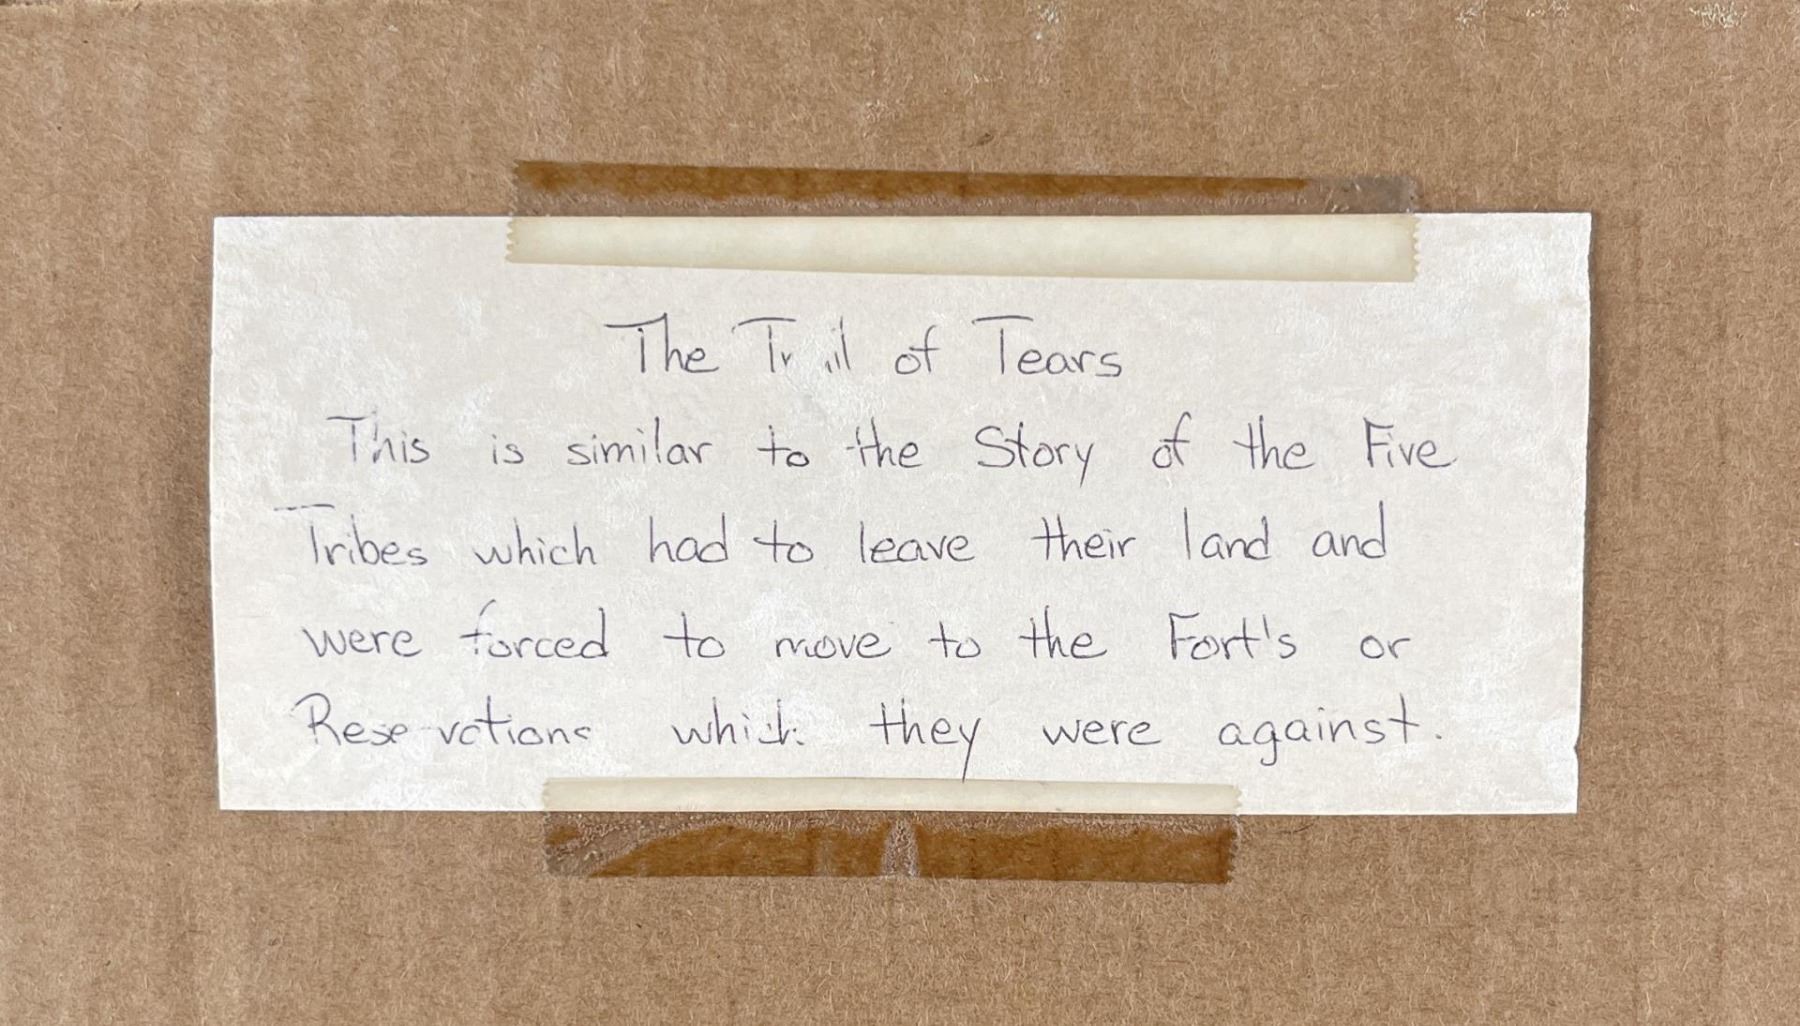 The Trail of Tears
This is similar to the Story of the Five
Tribes which had to leave their land and
were forced to move to the Fort's or
Reservations which they were against.